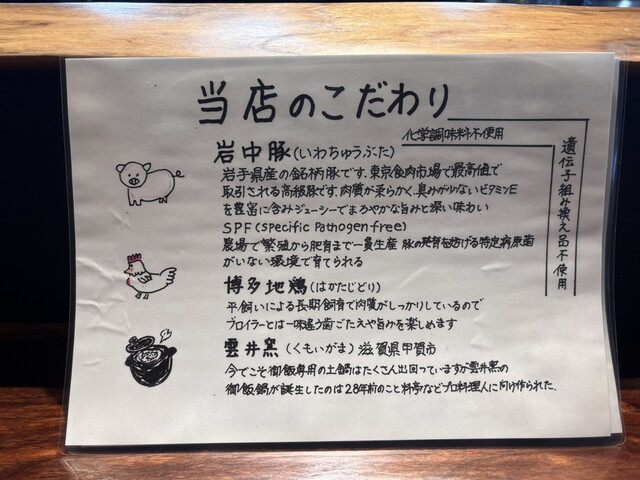 当店のこだわり
化学調味料不使用
遺伝子組み換え品不使用
岩中豚(いわちゅうぶた)
岩手県産の銘柄豚です。東京食肉市場で最高値で
取引される高級豚です。肉質が柔らかく、臭みが少ないビタミンE
を豊富に含みジューシーでまろやかな旨みと深い味わい
SPF(specific pathogen free)
農場で繁殖から肥育まで一貫生産 豚の発育を妨げる特定病原菌
がいない環境で育てられる
博多地鶏(はかたじどり)
平飼いによる長期飼育で肉質がしっかりしているので
ブロイラーとは一味違う歯ごたえや旨みを楽しめます
雲井窯(くもいがま)滋賀県甲賀市
今でこそ御飯専用の土鍋はたくさん出回っていますが雲井窯の
御飯鍋が誕生したのは28年前のこと料亭などプロ料理人に向け作られた.